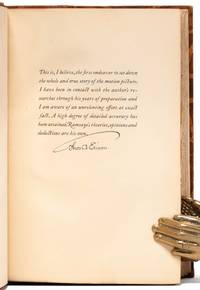 This is, I believe, the first endeavor to set down
the whole and true story of the motion picture.
I have been in contact with the author's re-
searches through his years of preparation and
I am aware of an unrelenting effort at exact
fact. A high degree of detailed accuracy has
been attained. Ramsaye's theories, opinions and
deductions are his own.
Thos A Edison